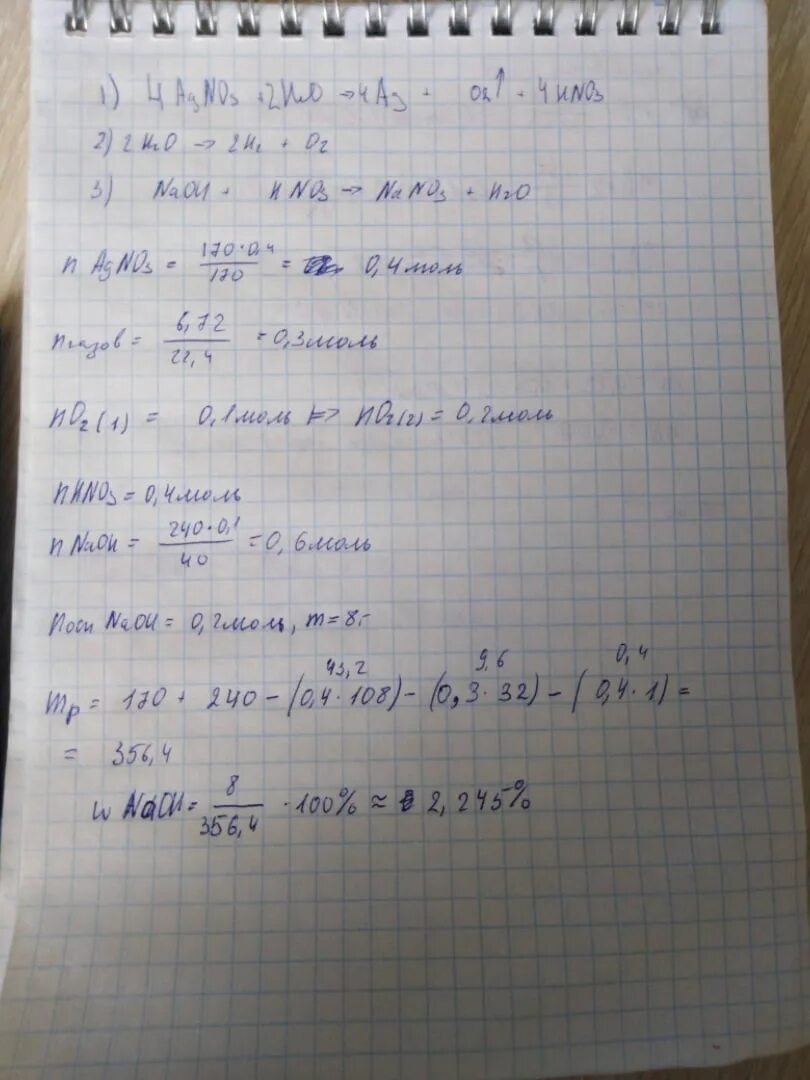 1) 4 AgNO3 + 2H2O → 4Ag + O2↑ + 4HNO3
2) 2H2O → 2H2 + O2
3) NaOH + HNO3 → NaNO3 + H2O
n AgNO3 = 170·0,4 / 170 = 0,4 моль
nгазов = 6,72 / 22,4 = 0,3 моль
nO2(1) = 0,1 моль => nO2(2) = 0,2 моль
nHNO3 = 0,4 моль
n NaOH = 240·0,1 / 40 = 0,6 моль
nост NaOH = 0,2 моль, m = 8г
43,2 9,6 0,4
mр = 170 + 240 - (0,4·108) - (0,3·32) - (0,4·1) =
= 356,4
w NaOH = 8 / 356,4 · 100% ≈ 2,245%